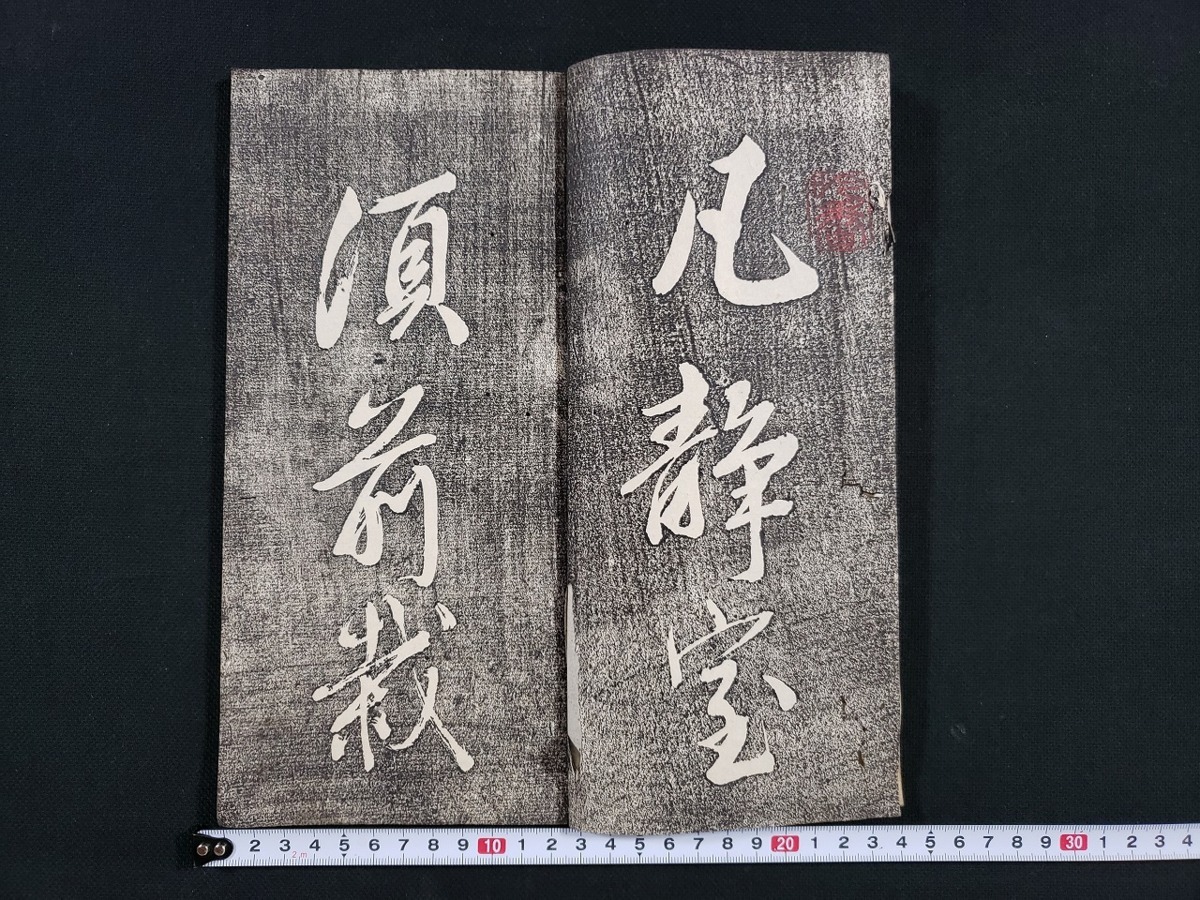 凡静室
須前栽
2 3 4 5 6 7 8 9 10 1 2 3 4 5 6 7 8 9 20 1 2 3 4 5 6 7 8 9 30 1 2 3 4
2m